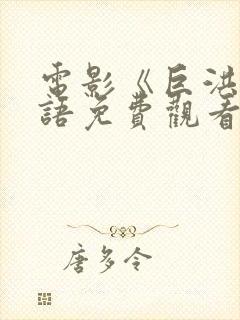 電影《巨洪
語免費觀看
唐多令